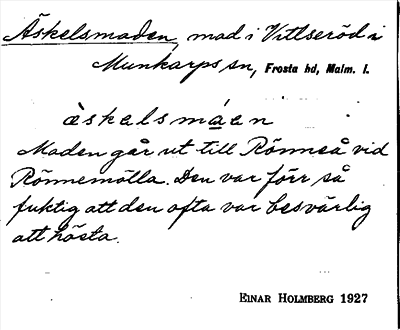 Äskelsmaden, mad i Vittseröd i
Munkarps sn, Frosta hd, Malm. l.
äskelsmáen
Maden går ut till Rönneå vid
Rönnemölla. Den var förr så
fuktig att den ofta var besvärlig
att hösta.
EINAR HOLMBERG 1927